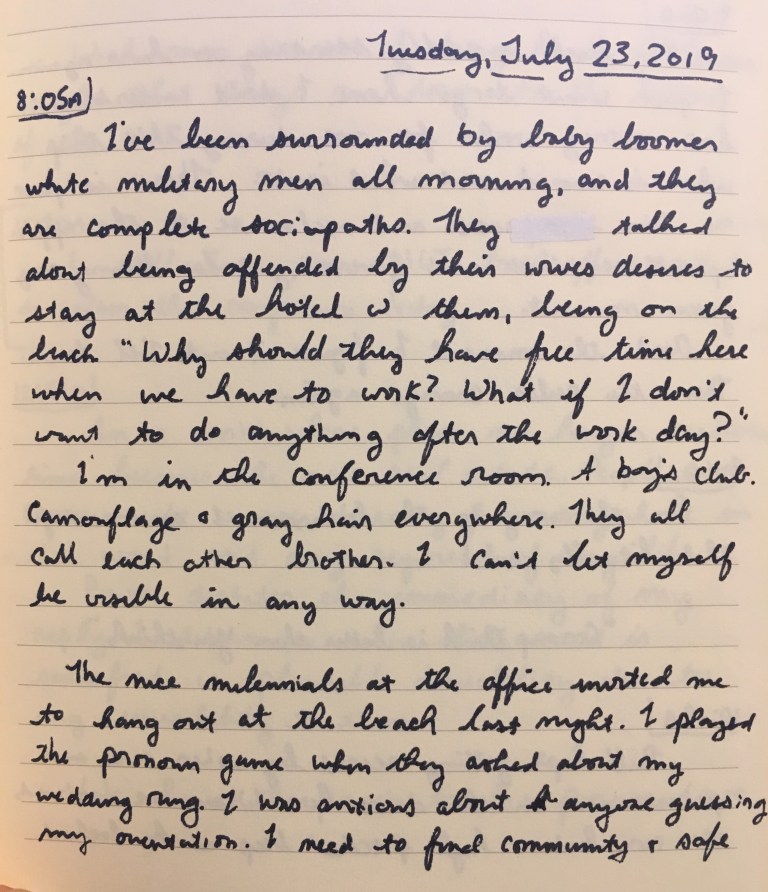 Tuesday, July 23, 2019
8:05A
I've been surrounded by baby boomer
white military men all morning, and they
are complete sociopaths. They talked
about being offended by their wives desires to
stay at the hotel w them, being on the
beach "Why should they have free time here
when we have to work? What if I don't
want to do anything after the work day?"
I'm in the conference room. A boy's club.
Camouflage & gray hair everywhere. They all
call each other brother. I can't let myself
be visible in any way.
The nice milennials at the office invited me
to hang out at the beach last night. I played
the pronoun game when they asked about my
wedding ring. I was anxious about anyone guessing
my orientation. I need to find community & safe